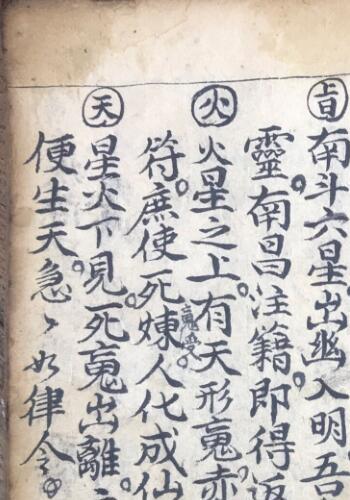 南斗六星。出幽入明。吾
靈。南昌注籍。即得返
火 火星之上。有天形魂赤
魂受。
符。庶使死煉人化成仙
天 星火下見。死魂出離
便生天。急〻如律令。